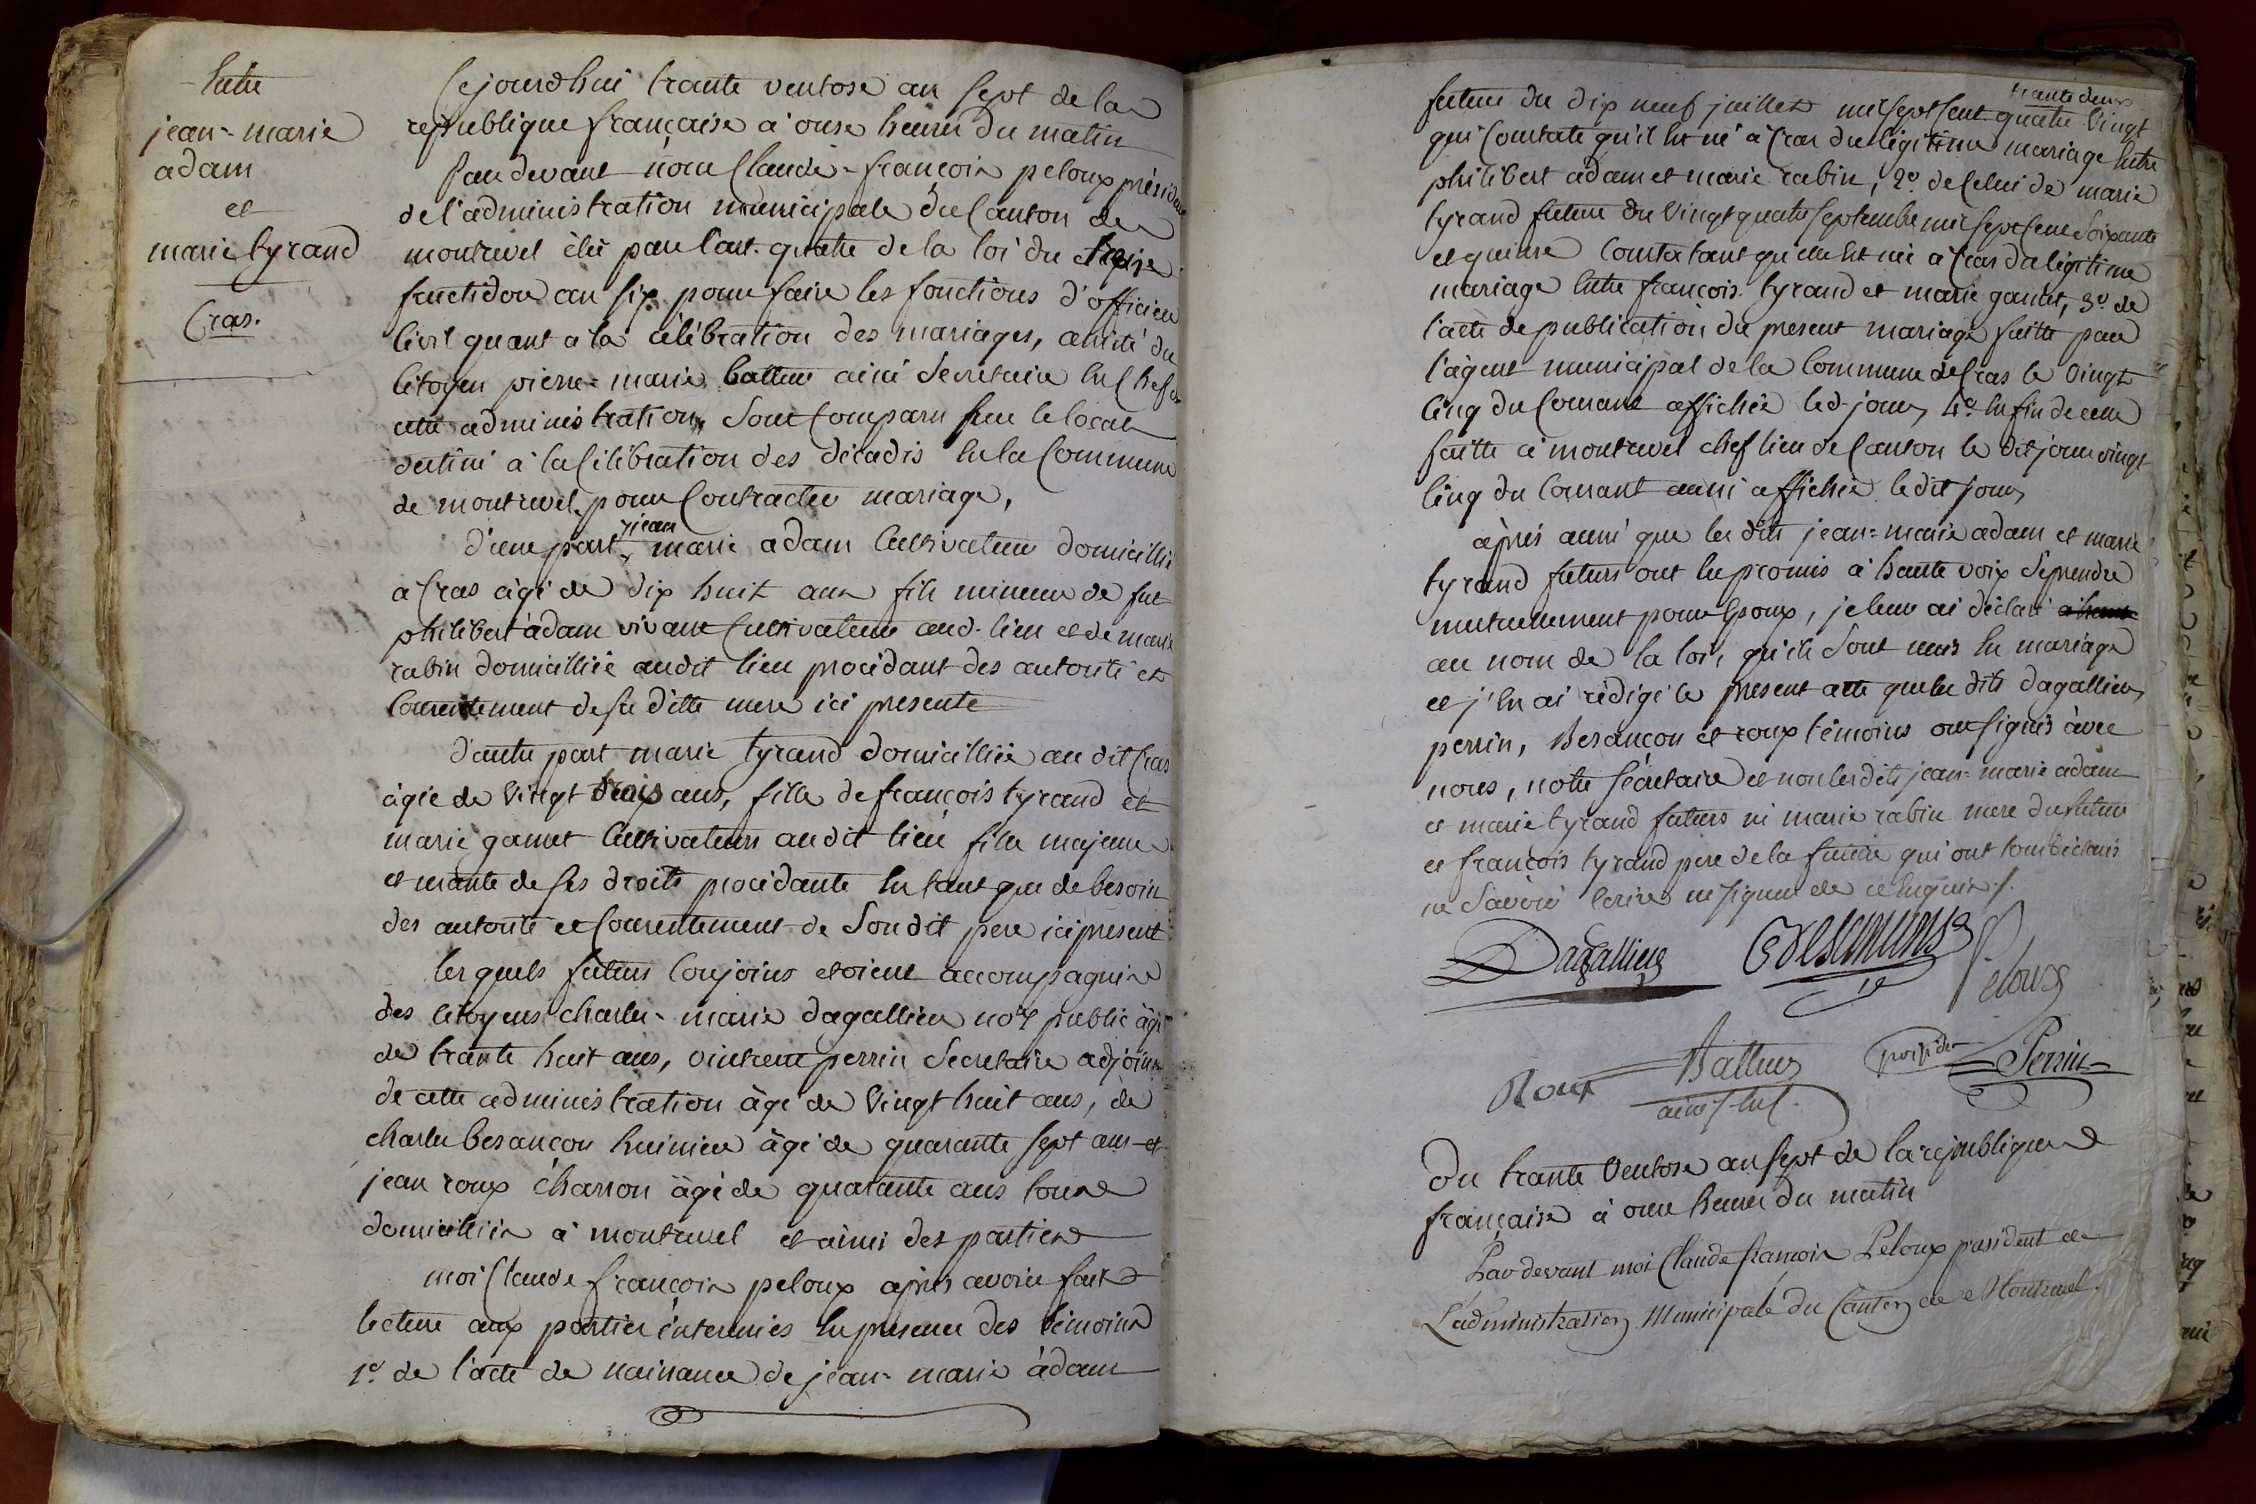 Entre
jean=marie
adam
et
marie tyrand
Cras.
Cejourdhui trante ventose an sept de la
republique française à onse heures du matin
Pardevant nous Claude=françois peloux président
de l'administration municipale du Canton de
montrevel élu par l'art. quatre de la loi du treize
fructidor an six pour faire les fonctions d'officier
Civil quant a la célébration des mariages, assisté du
Citoyen pierre=marie batteur ainé Secretaire En Chef de
cette administration, Sont Comparu sur le local
destiné à la Célébration des décadis En la Commune
de montrevel, pour Contracter mariage,
d'une part jean marie adam Cultivateur domicillié
à Cras âgé de dix huit ans fils mineur de fut
philibert adam vivant Cultivateur aud. lieu et de marie
rabin domicilliée audit lieu procédant des autorité et
Consentement de sa ditte mere ici presente
d'autre part marie tyrand domicilliée au dit Cras
âgée de Vingt trois ans, fille de françois tyrand et
marie gamet Cultivateurs au dit lieu fille majeure
et maitre de ses droits procédante En tant que de besoin
des autorité et Consentement de Son dit pere ici present
les quels futurs Conjoins etoient accompagnés
des Citoyens charles=marie dagallier nore public âgé
de trante huit ans, vintrent perrin Secretaire adjoint
de cette administration âgé de Vingt huit ans, de
charles besançon huissier âgé de quarante sept ans et
jean roux charron âgé de quarante ans tous
domicilliés à montrevel et amis des parties
moi Claude françois peloux après avoir fait
lecture aux parties interessées En presence des témoins
1o. de l'acte de naissance de jean=marie adam
futur du dix neuf juillet mil sept Cent quatre Vingt
trante deux
qui Constate qu'il Est né à Cras du légitime mariage Entre
philibert adam et marie rabin, 2o. de Celui de marie
tyrand future du Vingt quatre septembre mil sept Cent Soixante
et quinse Constatant qu'elle Est née à Cras du légitime
mariage Entre françois tyrand et marie gamet, 3o. de
l'acte de publication du present mariage faitte par
l'agent municipal de la Commune de Cras le Vingt
Cinq du Courant affichée led. jour, 4o. En fin de celle
faitte à montrevel chef lieu de Canton le dit jour vingt
Cinq du Courant aussi affichée le dit jour,
après aussi que les dits jean=marie adam et marie
tyrand futurs ont Eu promis à haute voix Se prendre
mutuellement pour Epoux, je leur ai déclaré a haute
au nom de la loi, qu'ils Sont unis En mariage
et j'En ai rédigé le present acte que les dits dagallier,
perrin, Besançon et roux témoins ont signés avec
nous, notre Sécretaire et non les dits jean=marie adam
et marie tyrand futurs ni marie rabin mere du futur
et françois tyrand pere de la future qui ont tous déclarés
ne Savoir Ecrire ni signer de ce Enquis ./.
Dagallier
Peloux
Roux
Batteur
ainé
Perrin
Du trante Ventose an sept de la republique
française à onse heures du matin
Par devant moi Claude françois Peloux president de
L'administration Municipale du Canton de Montrevel